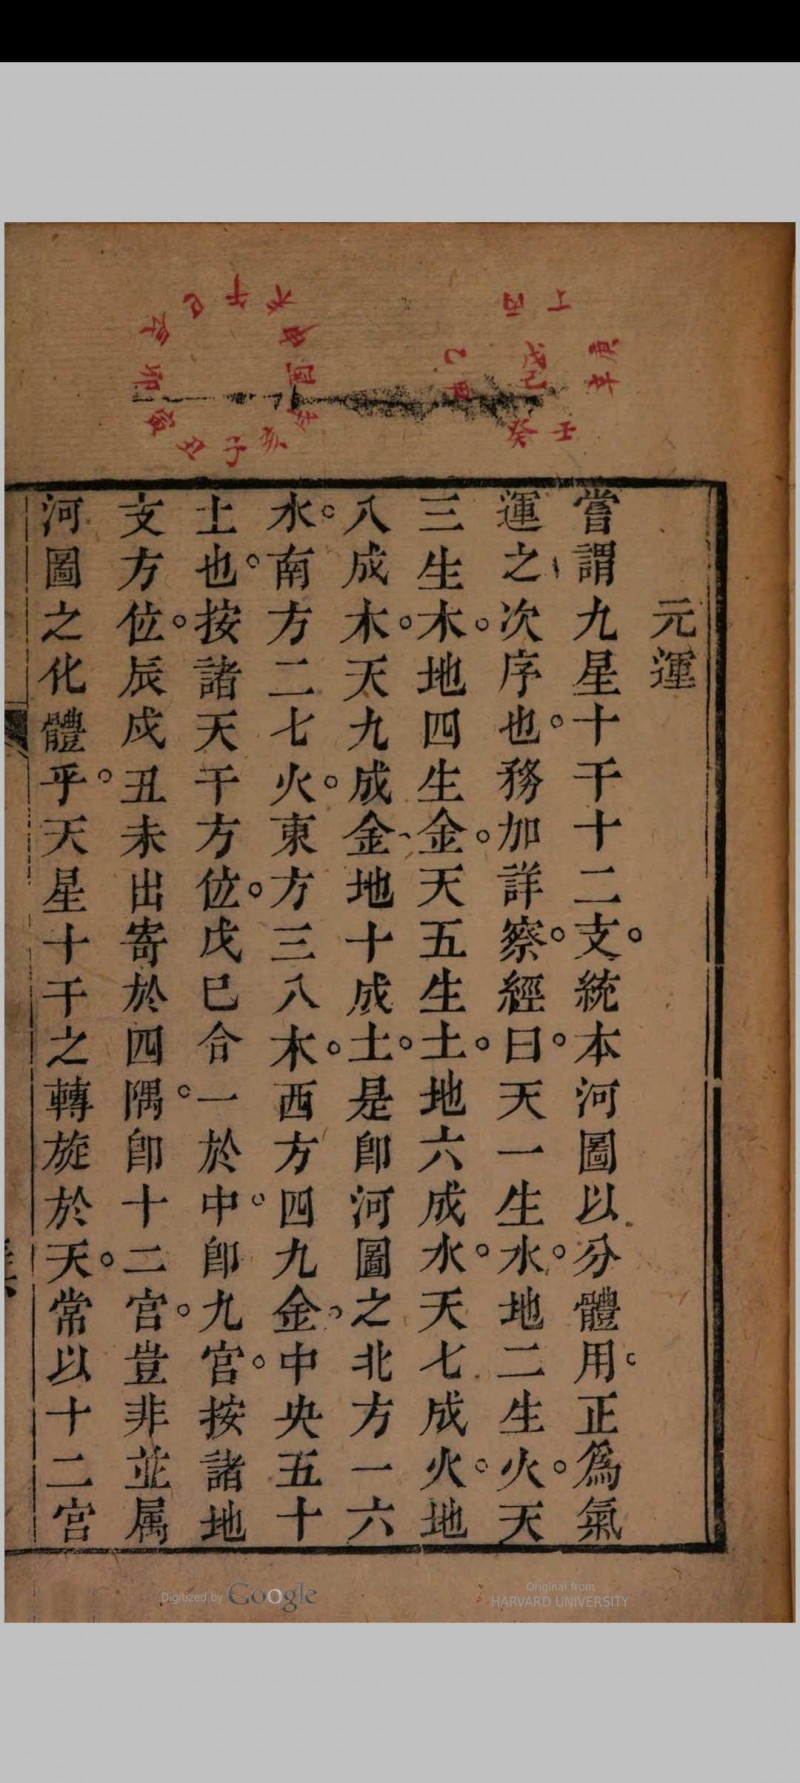 丁丙
庚辛
戊己
乙甲
壬癸
未午巳辰卯寅丑子亥戌酉申
元運
嘗謂九星十干十二支。統本河圖以分體用。正爲氣
運之次序也。務加詳察。經曰。天一生水。地二生火。天
三生木。地四生金。天五生土。地六成水。天七成火。地
八成木。天九成金、地十成土。是卽河圖之北方一六
水。南方二七火。東方三八木。西方四九金。中央五十
土也。按諸天干方位。戊巳合一於中。卽九宮。按諸地
支方位。辰戍丑未出寄於四隅。卽十二宮。豈非並属
河圖之化體乎。天星十干之轉旋於天。常以十二宮
Digitized by Google
Original from
HARVARD UNIVERSITY